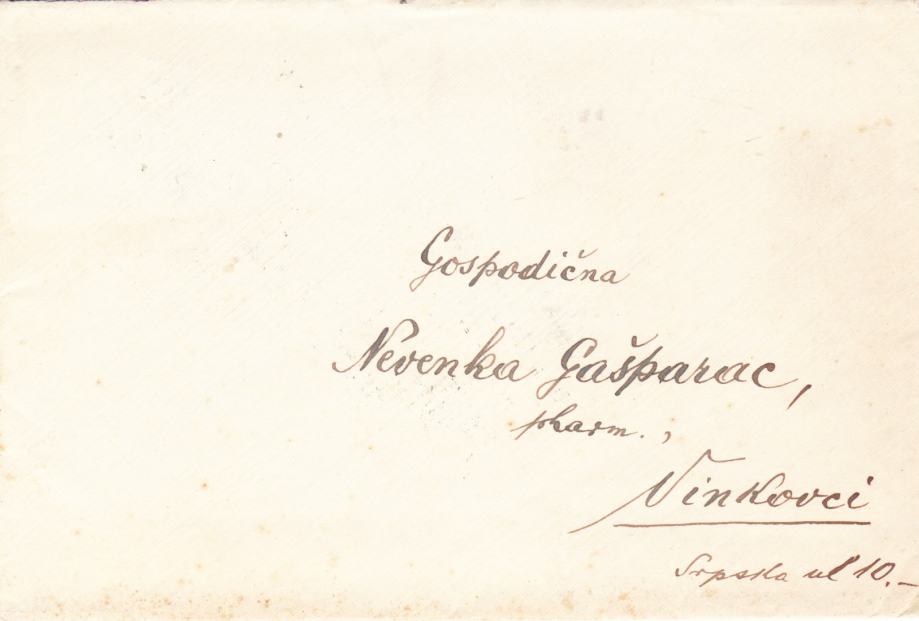 Gospodična
Nevenka Gašparac,
pharm.,
Vinkovci
Srpska ul 10.-